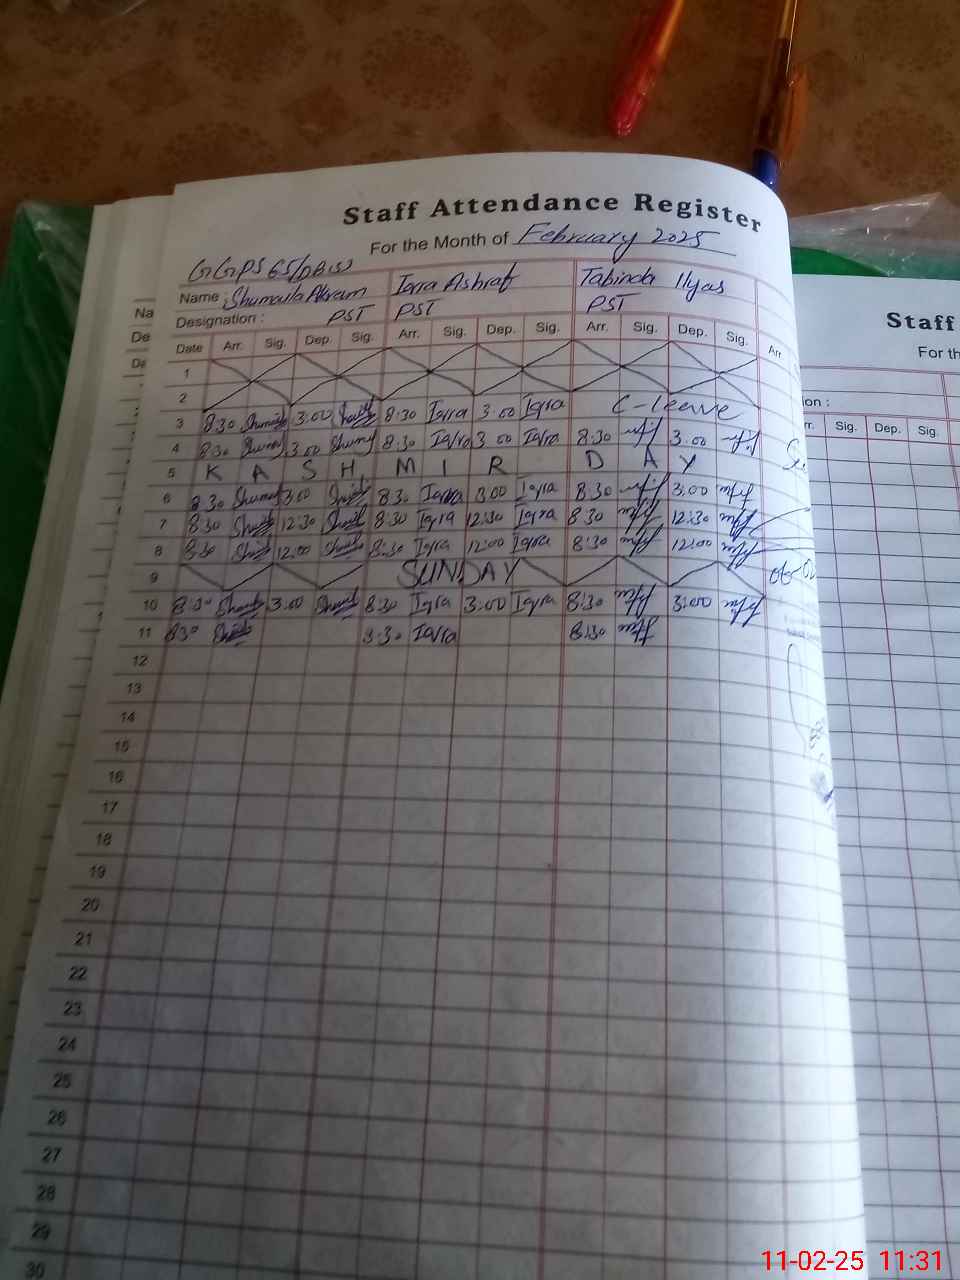 Staff Attendance Register
For the Month of February 2025
GGPS 65/DB(s)
Name : Shumaila Akram Iqra Ashraf Tabinda Ilyas
Designation : PST PST PST
Date Arr. Sig. Dep. Sig. Arr. Sig. Dep. Sig. Arr. Sig. Dep. Sig. Arr
1
2
3 8:30 3:00 8:30 Iqra 3:00 Iqra C-Leave
4 8:30 3:00 8:30 Iqra 3:00 Iqra 8:30 3:00
5 K A S H M I R D A Y
6 8:30 3:00 8:30 Iqra 3:00 Iqra 8:30 3:00
7 8:30 12:30 8:30 Iqra 12:30 Iqra 8:30 12:30
8 8:30 12:00 8:30 Iqra 12:00 Iqra 8:30 12:00
9 SUNDAY
10 8:30 3:00 8:30 Iqra 3:00 Iqra 8:30 3:00
11 8:30 8:30 Iqra 8:30
12
13
14
15
16
17
18
19
20
21
22
23
24
25
26
27
28
29
30
Na
De
Da
Staff
For th
ion :
rr. Sig. Dep. Sig.
11-02-25 11:31